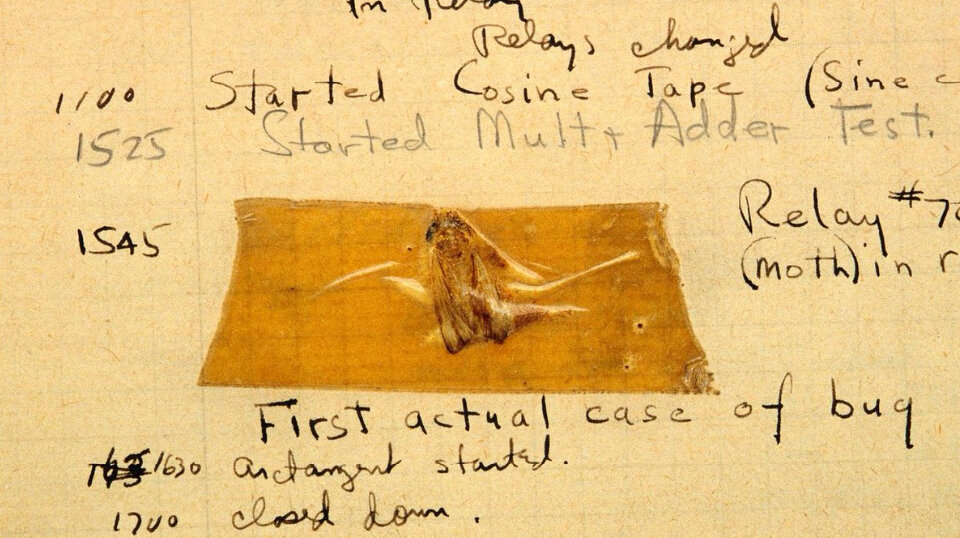 in relay
Relays changed
1100 Started Cosine Tape (Sine c
1525 Started Mult + Adder Test.
1545 Relay #70
(moth) in r
First actual case of bug
1630 arctangent started.
1700 closed down.